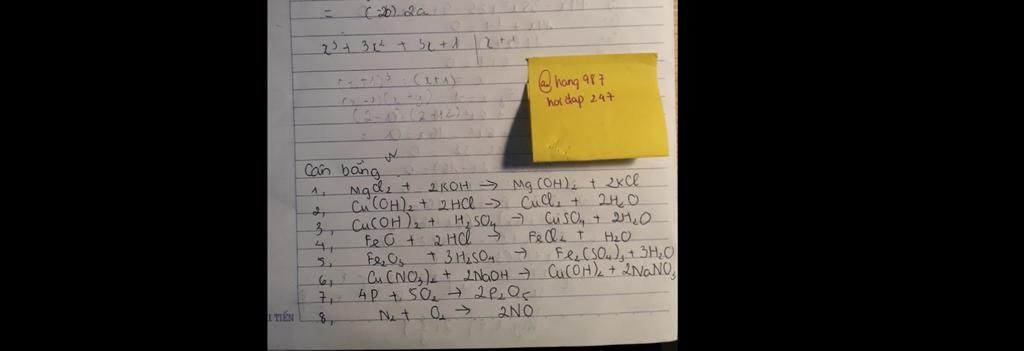 = (-2b) 2a
x³ + 3x² + 3x + 1 | x + 1
@hang987
hoidap 247
Cân bằng
1, MgCl₂ + 2KOH → Mg(OH)₂ + 2KCl
2, Cu(OH)₂ + 2HCl → CuCl₂ + 2H₂O
3, Cu(OH)₂ + H₂SO₄ → CuSO₄ + 2H₂O
4, FeO + 2HCl → FeCl₂ + H₂O
5, Fe₂O₃ + 3H₂SO₄ → Fe₂(SO₄)₃ + 3H₂O
6, Cu(NO₃)₂ + 2NaOH → Cu(OH)₂ + 2NaNO₃
7, 4P + 5O₂ → 2P₂O₅
8, N₂ + O₂ → 2NO
I TIẾN